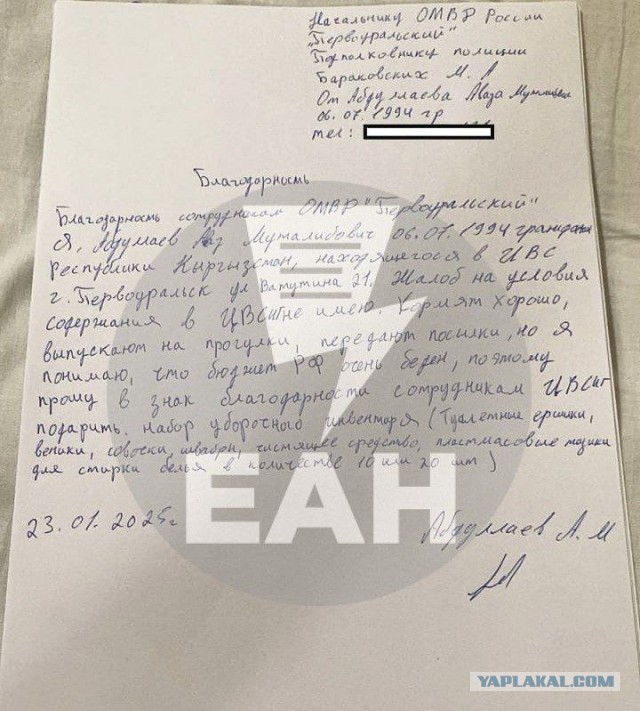 Начальнику ОМВД России
"Первоуральский"
Подполковнику полиции
Барановских М. А
От Абдуллаева Аваза
06.07.1994 гр
тел:
Благодарность
Благодарность сотрудникам ОМВД "Первоуральский"
Я, Абдуллаев Муталибович 06.07.1994 гражданин
Республики Кыргызстан, находящегося в ЦВС
г. Первоуральск ул Ватутина 21. Жалоб на условия
содержания в ЦВСИГ не имею. Кормят хорошо,
випускают на прогулки, передают посылки, но я
понимаю, что бюджет РФ очень беден, поэтому
прошу в знак благодарности сотрудникам ЦВСИГ
подарить. набор уборочного инвентаря (Туалетные ершики,
веники, совочки, швабры, чистящее средство, пластмасовые тазики
для стирки белья в количестве 10 или 20 шт)
23.01.2025г
Абдуллаев А.М
ЕАН
YAPLAKAL.COM